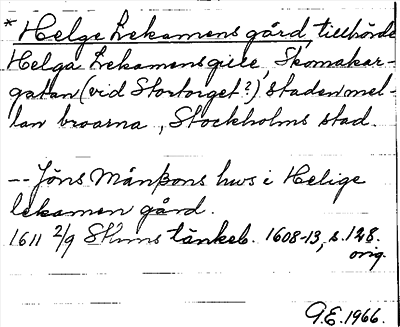 * Helge Lekamens gård, tillhörde
Helga Lekamensgille, Skomakar-
gatan (vid Stortorget?) staden mel-
lan broarna, Stockholms stad.
-- Jöns Månþons hws i Helige
lekamen gård.
1611 2/9 Sthms tänkeb. 1608-13, s. 128.
orig.
G.E. 1966.